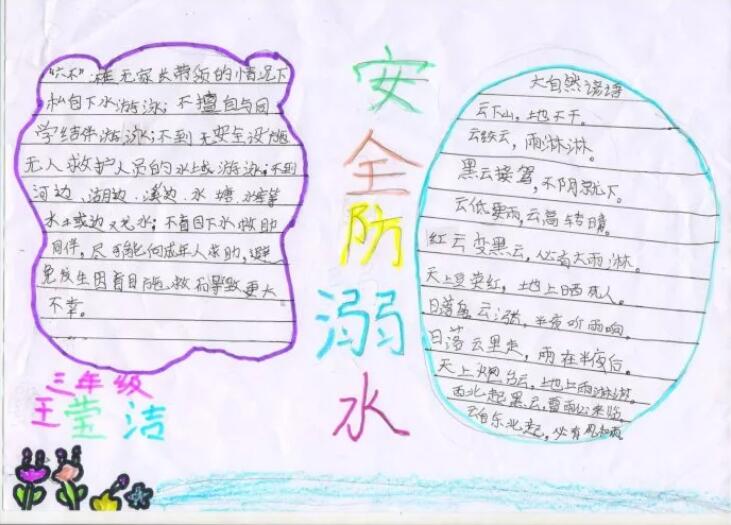 "六不":在无家长带领的情况下
私自下水游泳;不擅自与同
学结伴游泳;不到无安全设施
无人救护人员的水域游泳;不到
河边、湖边、溪边、水塘、水库等
水域边
;不盲目下水救助
同伴,尽可能向成年人求助,避
免发生因盲目施救而导致更大
不幸。
三年级
王莹洁
安全防溺水
大自然谚语
云下山,地不干。
云绞云,雨淋淋。
黑云接驾,不阴就下。
云低要雨,云高转晴。
红云变黑云,必有大雨淋。
天上豆荚红,地上晒死人。
日落云涨,半夜听雨响。
日落云里走,雨在半夜后。
天上云,地上雨淋淋。
西北起黑云,雷雨必来临。
云自东北起,必有风和雨